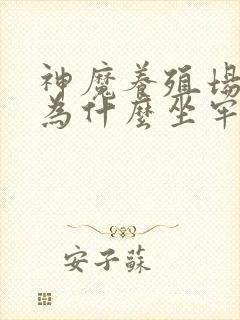 神魔養殖場
為什麼坐牢
安子蘇